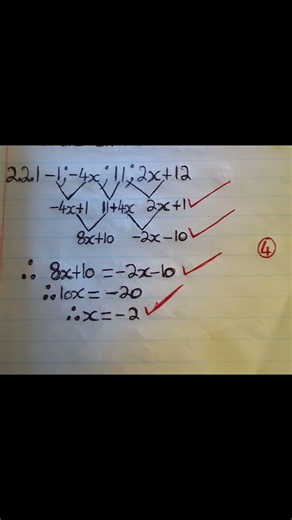 2.2.1 -1 ; -4x ; 11 ; 2x+12
-4x+1 11+4x 2x+1
8x+10 -2x-10
④
∴ 8x+10 = -2x-10
∴ 10x = -20
∴ x = -2